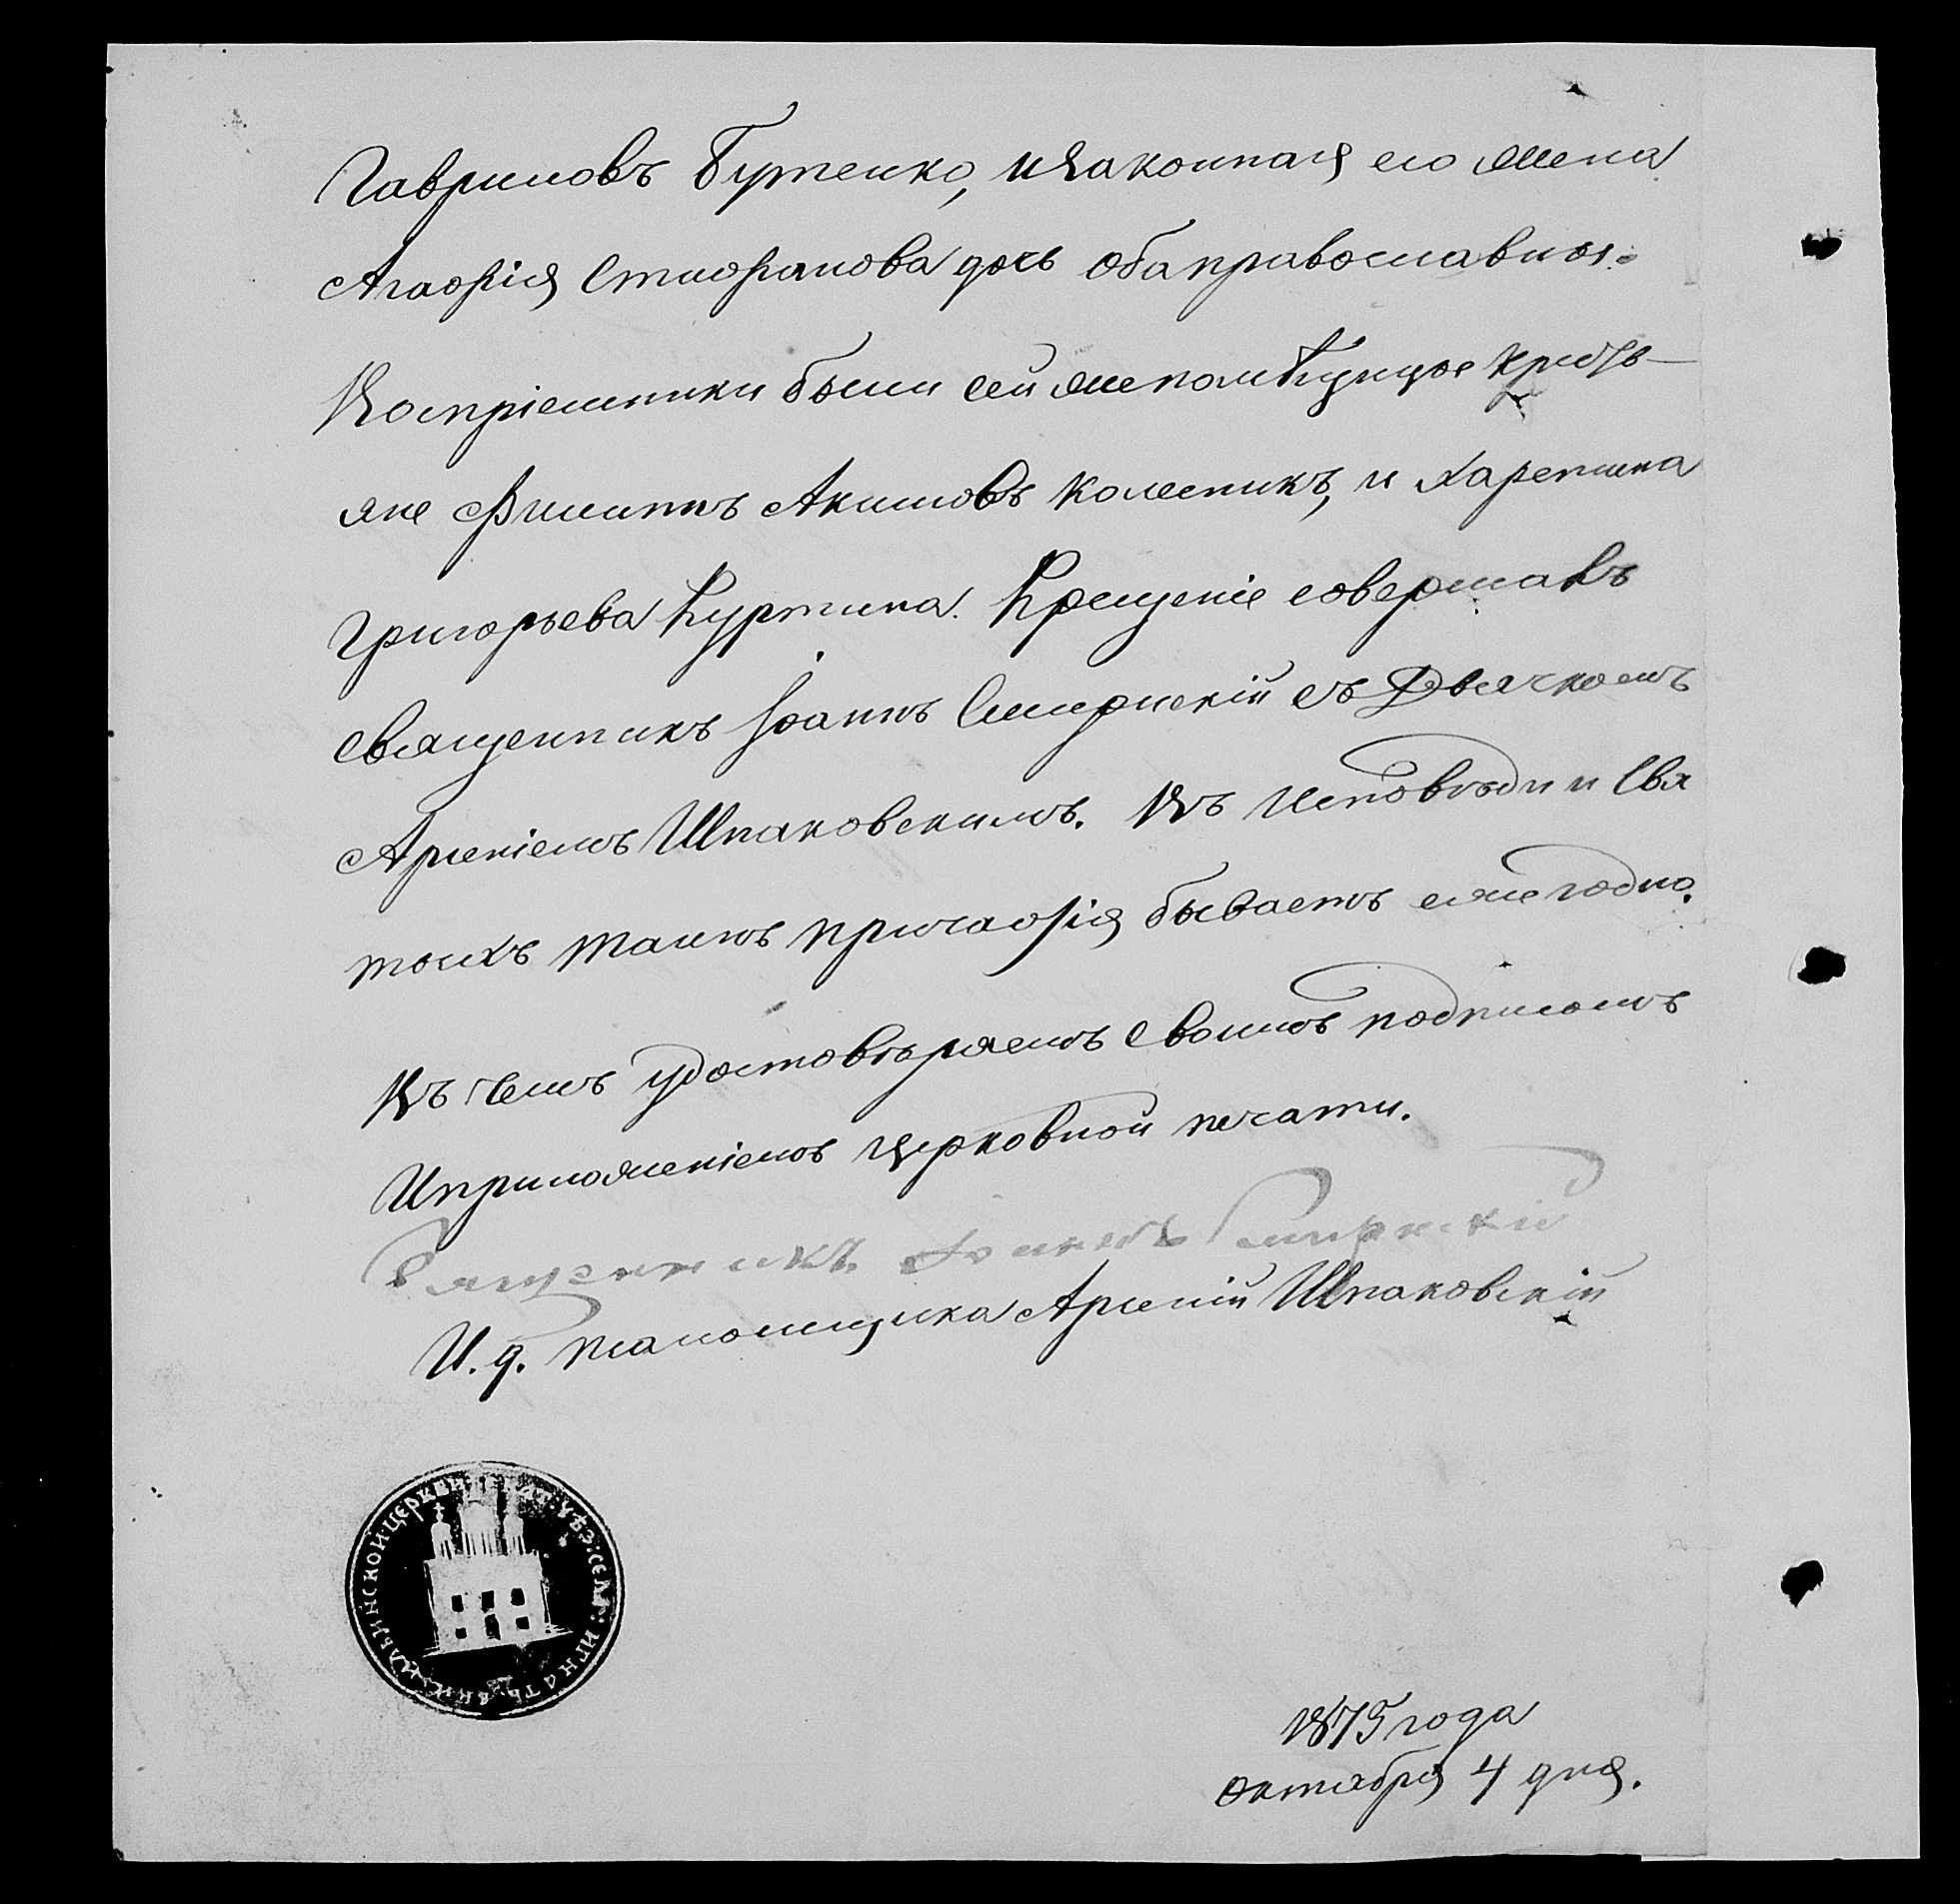 Гавриловъ Бутенко, и законная его жена
Агафія Стифанова дочь оба православныя.
Воспріемники были сей же помѣщицы кресть-
яне Филиппъ Акимовъ Колесникъ, и
Григорьева Куртина. Крещеніе совершавъ
священникъ Іоаннъ Смирнскій съ Дьячкомъ
Арсеніемъ Шпаковскимъ. Въ Исповѣди и Свя
тыхъ таинъ причастія бываетъ ежегодно.
Въ чемъ удостовѣряемъ своимъ подписомъ
И приложеніемъ церковной печати.
Священникъ Іоаннъ Смирнскій
И. д. пламощика Арсеній Шпаковскій
ИЛЬИНСКОЙ ЦЕРКВИ УѢЗ: СЕЛ: ИГНАТЬЕВКИ
1875 года
октября 4 дня.